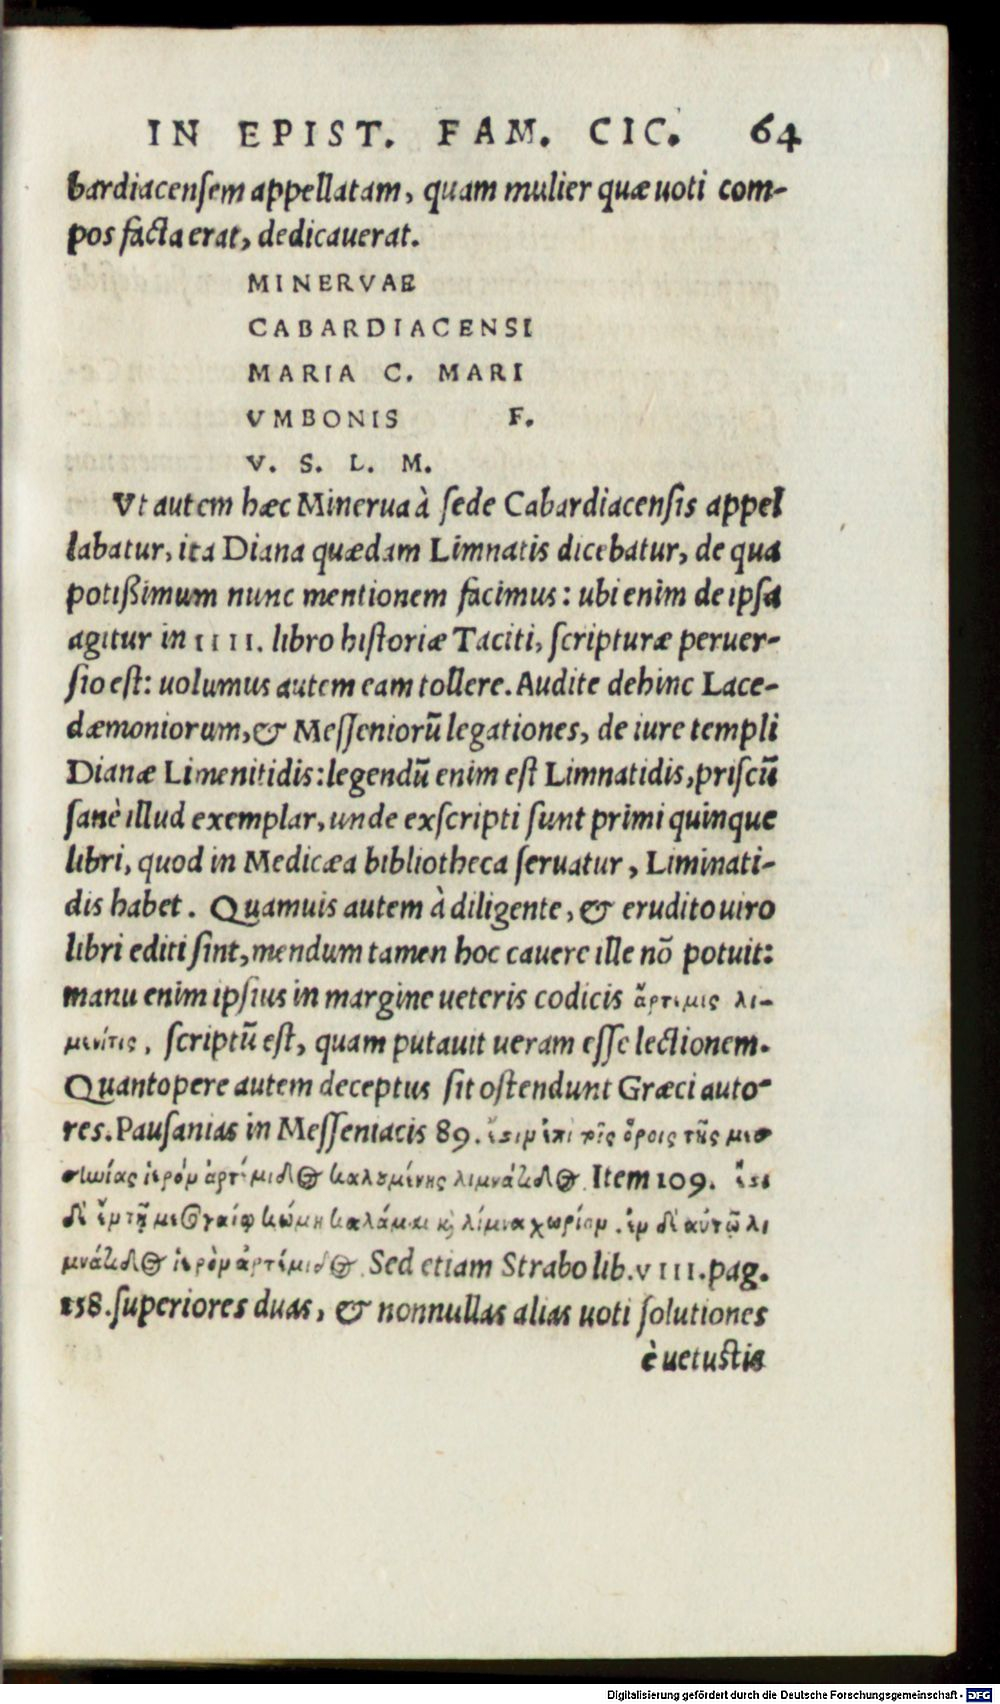 IN EPIST. FAM. CIC. 64
bardiacensem appellatam, quam mulier quæ uoti com-
pos facta erat, dedicauerat.
MINERVAE
CABARDIACENSI
MARIA C. MARI
VMBONIS F.
V. S. L. M.
Vt autem hæc Minerua à sede Cabardiacensis appel
labatur, ita Diana quædam Limnatis dicebatur, de qua
potißimum nunc mentionem facimus: ubi enim de ipsa
agitur in IIII. libro historiæ Taciti, scripturæ peruer-
sio est: uolumus autem eam tollere. Audite dehinc Lace-
dæmoniorum, & Messeniorū legationes, de iure templi
Dianæ Limenitidis: legendū enim est Limnatidis, priscū
sanè illud exemplar, unde exscripti sunt primi quinque
libri, quod in Medicæa bibliotheca seruatur, Liminati-
dis habet. Quamuis autem à diligente, & erudito uiro
libri editi sint, mendum tamen hoc cauere ille nō potuit:
manu enim ipsius in margine ueteris codicis ἄρτεμις λι-
μενίτις, scriptū est, quam putauit ueram esse lectionem.
Quantopere autem deceptus sit ostendunt Græci auto-
res. Pausanias in Messeniacis 89. ἔστιν ἐπὶ τοῖς ὅροις τῆς μεσ
σηνίας ἱερὸν ἀρτέμιδος καλουμένης λιμνάτιδος Item 109. ἔστι
δὲ ἐν τῇ μεσογαίῳ κώμη καλάμαι καὶ λίμναι χωρίον. ἐν δὲ αὐτῷ λι
μνάτιδος ἱερὸν ἀρτέμιδος. Sed etiam Strabo lib. VIII. pag.
158. superiores duas, & nonnullas alias uoti solutiones
è uetustis
Digitalisierung gefördert durch die Deutsche Forschungsgemeinschaft - DFG